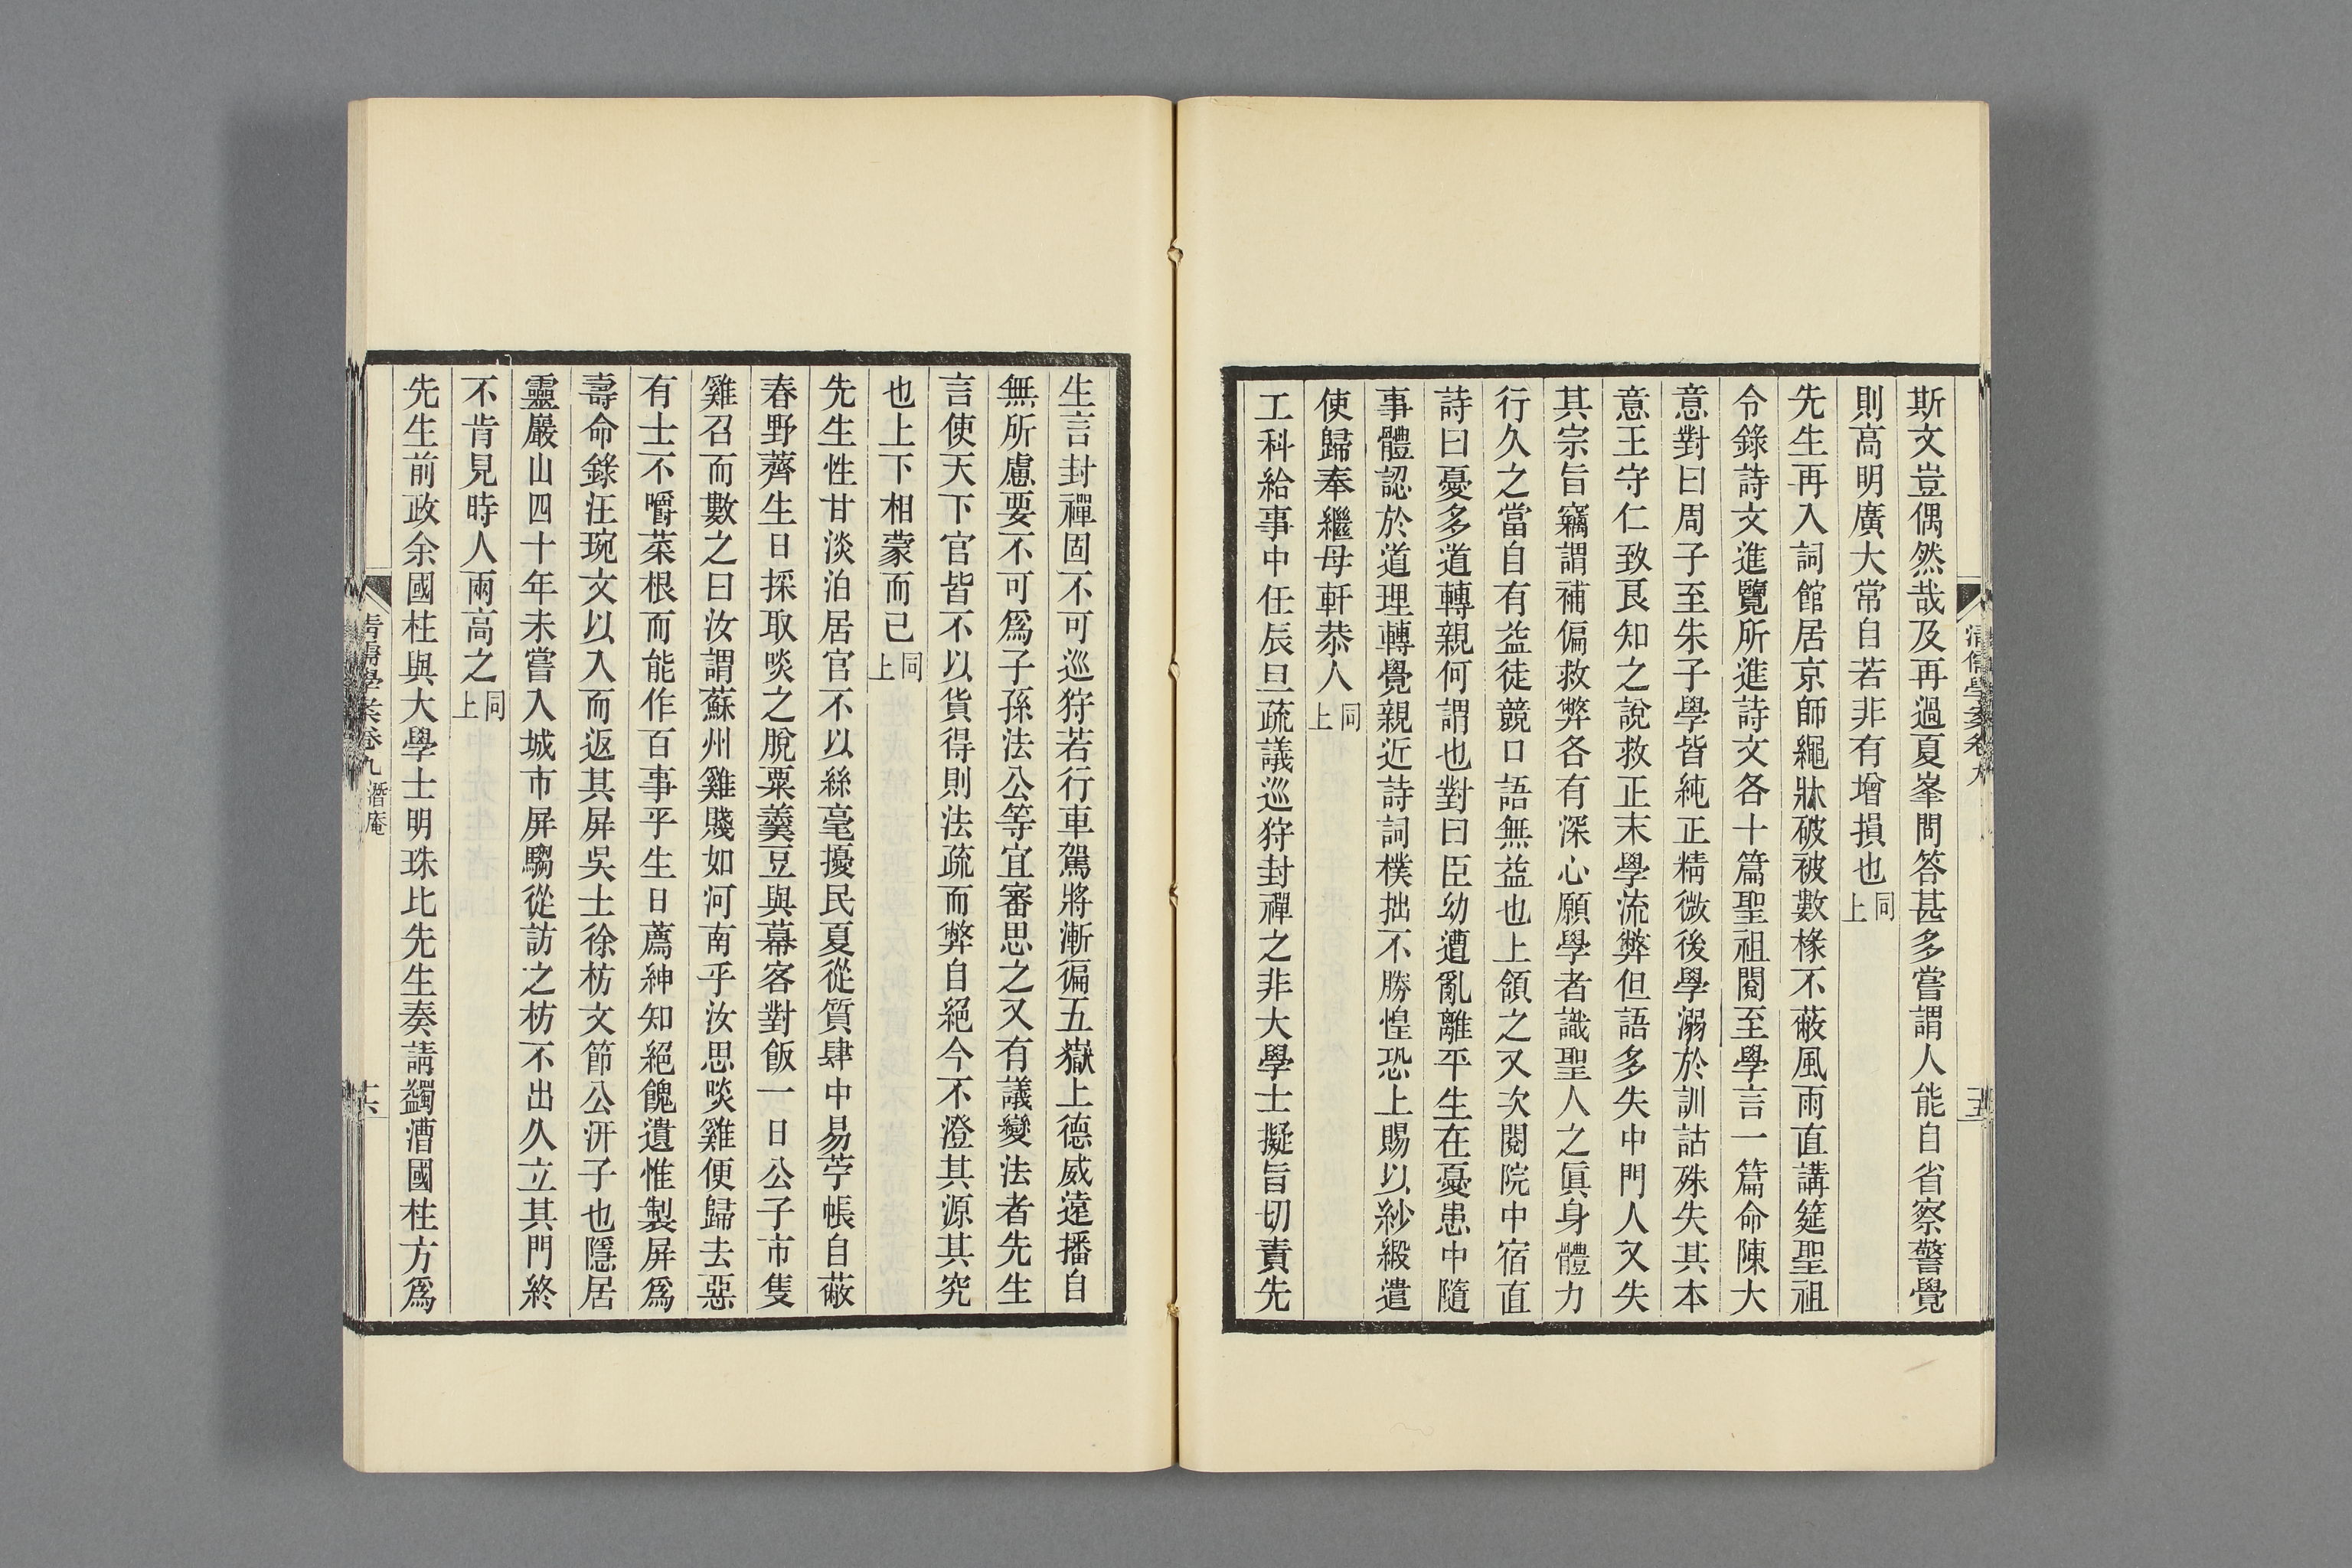 斯文豈偶然哉及再過夏峯問答甚多嘗謂人能自省察警覺
則高明廣大常自若非有增損也同上
先生再入詞館居京師繩牀破被數椽不蔽風雨直講筵聖祖
令錄詩文進覽所進詩文各十篇聖祖閱至學言一篇命陳大
意對曰周子至朱子學皆純正精微後學溺於訓詁殊失其本
意王守仁致良知之說救正末學流弊但語多失中門人又失
其宗旨竊謂補偏救弊各有深心願學者識聖人之眞身體力
行久之當自有益徒競口語無益也上頷之又次閱院中宿直
詩曰憂多道轉親何謂也對曰臣幼遭亂離平生在憂患中隨
事體認於道理轉覺親近詩詞樸拙不勝惶恐上賜以紗緞遣
使歸奉繼母軒恭人同上
工科給事中任辰旦疏議巡狩封禪之非大學士擬旨切責先
生言封禪固不可巡狩若行車駕將漸徧五嶽上德威遠播自
無所慮要不可爲子孫法公等宜審思之又有議變法者先生
言使天下官皆不以貨得則法疏而弊自絕今不澄其源其究
也上下相蒙而已同上
先生性甘淡泊居官不以絲毫擾民夏從質肆中易苧帳自蔽
春野薺生日採取啖之脫粟羹豆與幕客對飯一日公子市隻
雞召而數之曰汝謂蘇州雞賤如河南乎汝思啖雞便歸去惡
有士不嚼菜根而能作百事乎生日薦紳知絕餽遺惟製屏爲
壽命錄汪琬文以入而返其屏吳士徐枋文節公汧子也隱居
靈巖山四十年未嘗入城市屏騶從訪之枋不出久立其門終
不肯見時人兩高之同上
先生前政余國柱與大學士明珠比先生奏請蠲漕國柱方爲
清儒學案卷九
十五
清儒學案卷九 潛庵
十六